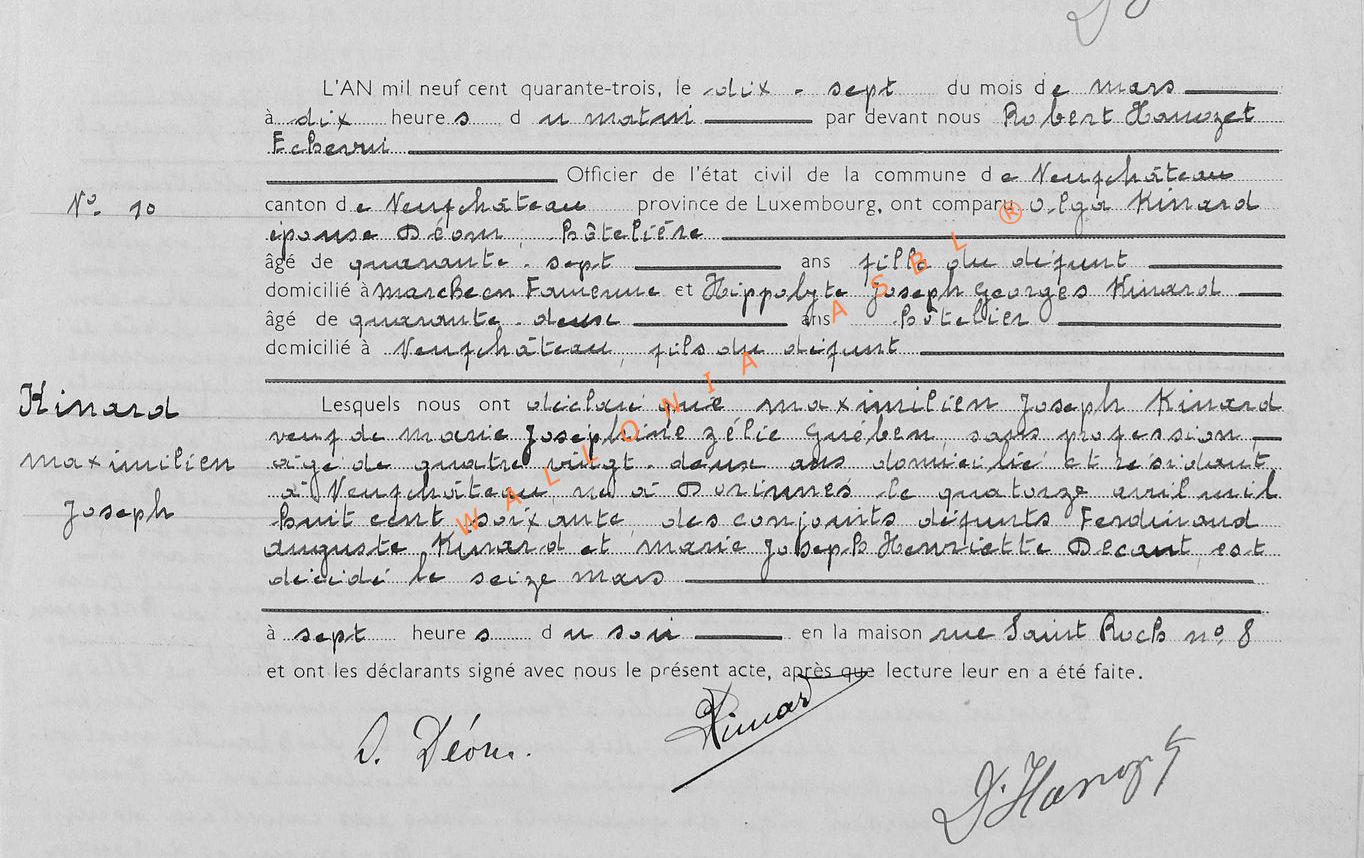 L'AN mil neuf cent quarante-trois, le dix - sept du mois de mars
à dix heures du matin par devant nous Robert Hanozet
Echevin
Officier de l'état civil de la commune de Neufchâteau
N° 10
canton de Neufchâteau province de Luxembourg, ont comparu Olga Kinard
épouse Déom, hôtelière
âgé de quarante - sept ans fille du défunt
domicilié à Marche en Famenne et Hippolyte Joseph Georges Kinard
âgé de quarante - deux ans hôtelier
domicilié à Neufchâteau, fils du défunt
Kinard
maximilien
Joseph
Lesquels nous ont déclaré que maximilien Joseph Kinard
veuf de marie Josephine Zélie Guében, sans profession
âgé de quatre vingt - deux ans domicilié et résidant
à Neufchâteau, né à Dorinnes le quatorze avril mil
huit cent soixante des conjoints défunts Ferdinand
auguste Kinard et marie Joseph Henriette Decant, est
décédé le seize mars
à sept heures du soir en la maison rue Saint Roch n° 8
et ont les déclarants signé avec nous le présent acte, après que lecture leur en a été faite.
O. Déom.
Kinard
Hanozet
WALLONIA ASBL ®